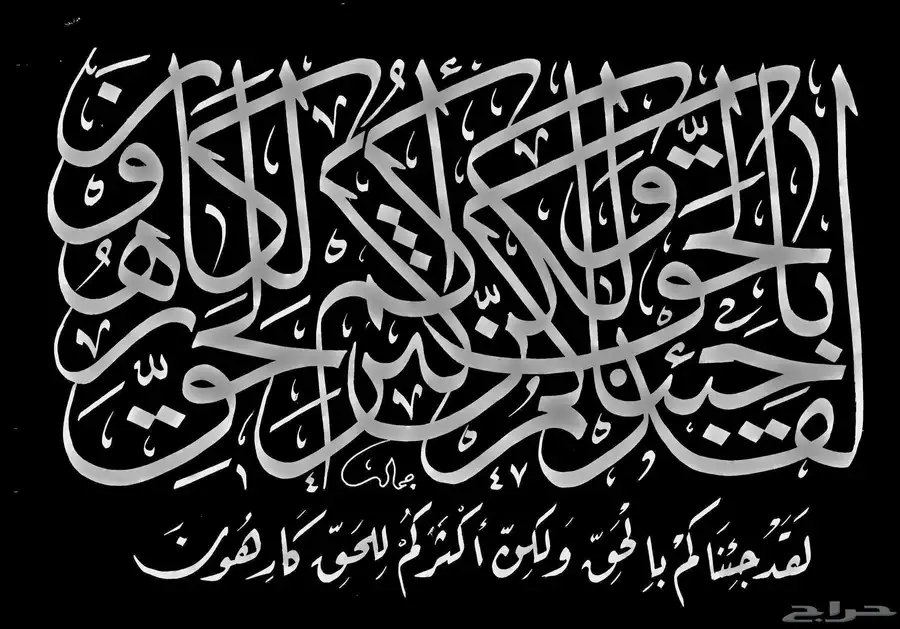 لقد جئناكم بالحق ولكن أكثركم للحق كارهون
جمالت
٤٧
لَقَدْ جِئْنَاكُمْ بِالْحَقِّ وَلَكِنَّ أَكْثَرَكُمْ لِلْحَقِّ كَارِهُونَ
حراج